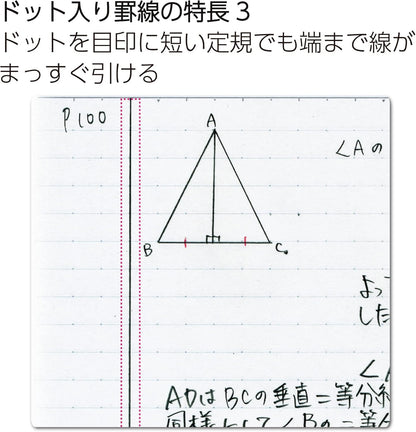 ドット入り罫線の特長 3
ドットを目印に短い定規でも端まで線が
まっすぐ引ける
P100
A
∠Aの
B
C
よっ
した
∠
ADはBCの垂直二等分
同様にして∠Bの二等